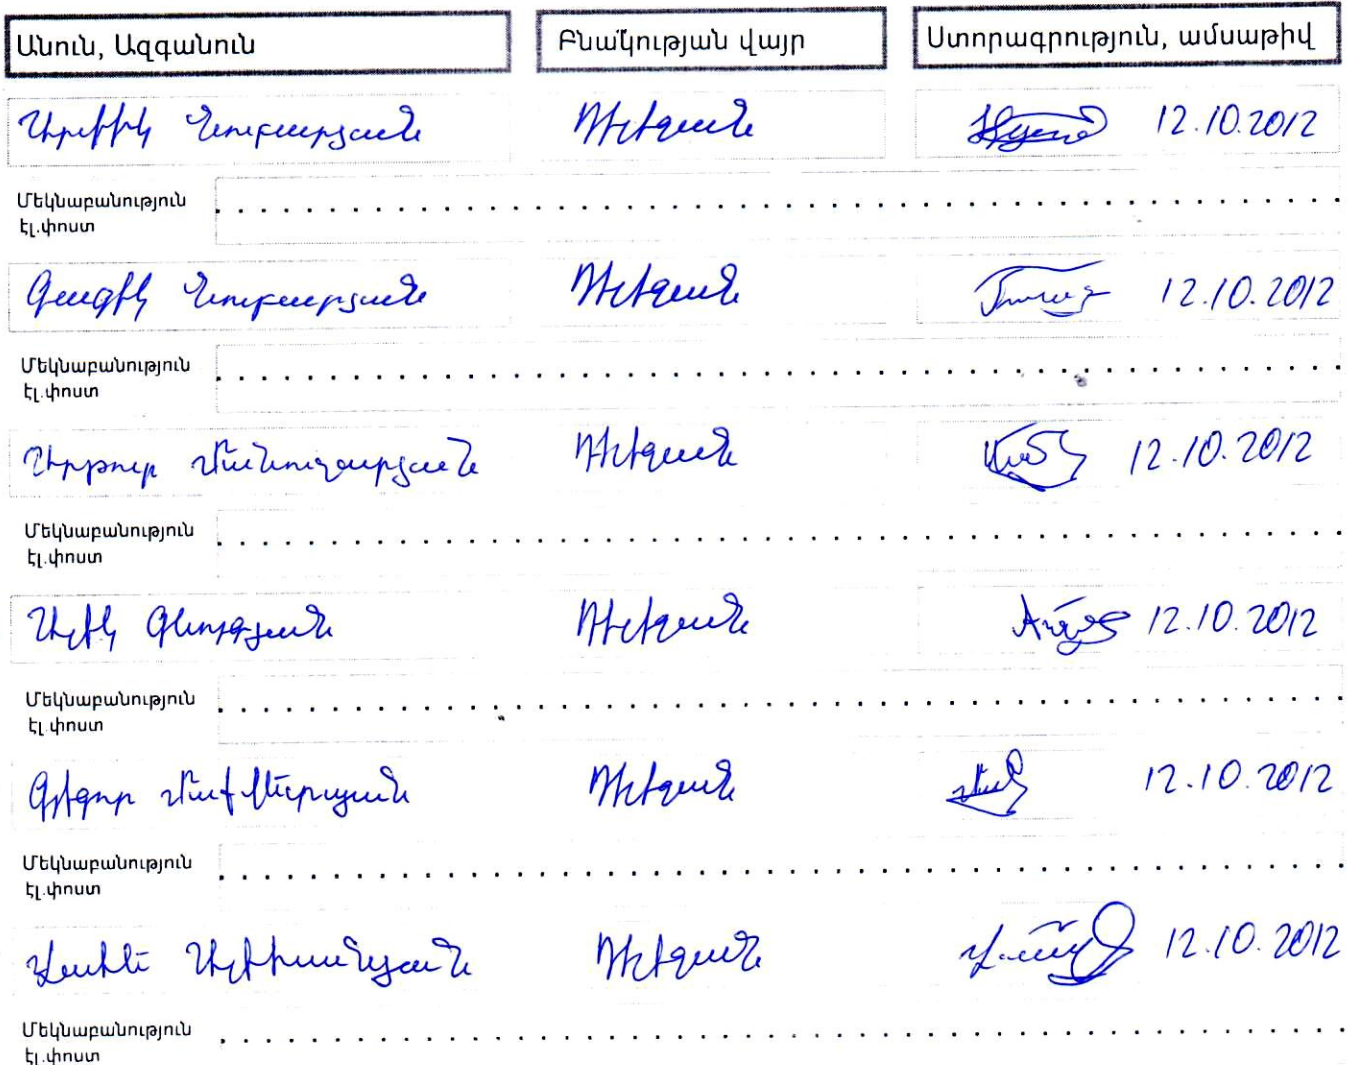 Անուն, Ազգանուն Բնակության վայր Ստորագրություն, ամսաթիվ
Նուբարյան Դիլիջան 12.10.2012
Մեկնաբանություն
էլ.փոստ
Գագիկ Նուբարյան Դիլիջան 12.10.2012
Մեկնաբանություն
էլ.փոստ
Արթուր Մանուչարյան Դիլիջան 12.10.2012
Մեկնաբանություն
էլ.փոստ
Ալիկ Գևորգյան Դիլիջան 12.10.2012
Մեկնաբանություն
էլ.փոստ
Գրիգոր Դիլիջան 12.10.2012
Մեկնաբանություն
էլ.փոստ
Ալիխանյան Դիլիջան 12.10.2012
Մեկնաբանություն
էլ.փոստ